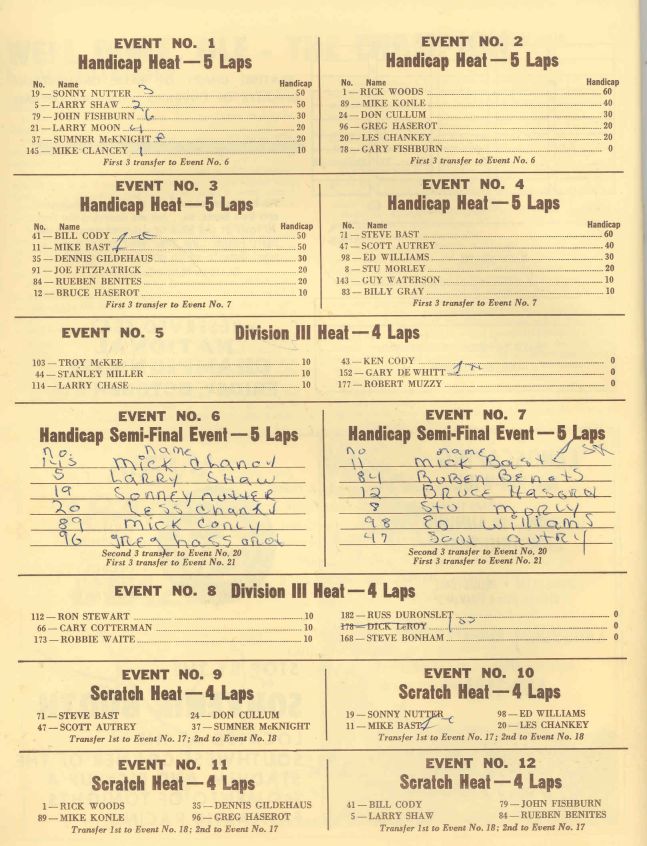 EVENT NO. 1
Handicap Heat — 5 Laps
No. Name Handicap
19 — SONNY NUTTER 3 50
5 — LARRY SHAW 2 50
79 — JOHN FISHBURN 6 30
21 — LARRY MOON 4 20
37 — SUMNER McKNIGHT 20
145 — MIKE CLANCEY 1 10
First 3 transfer to Event No. 6
EVENT NO. 2
Handicap Heat — 5 Laps
No. Name Handicap
1 — RICK WOODS 60
89 — MIKE KONLE 40
24 — DON CULLUM 30
96 — GREG HASEROT 20
20 — LES CHANKEY 20
78 — GARY FISHBURN 0
First 3 transfer to Event No. 6
EVENT NO. 3
Handicap Heat — 5 Laps
No. Name Handicap
41 — BILL CODY 50
11 — MIKE BAST 50
35 — DENNIS GILDEHAUS 30
91 — JOE FITZPATRICK 20
84 — RUEBEN BENITES 20
12 — BRUCE HASEROT 10
First 3 transfer to Event No. 7
EVENT NO. 4
Handicap Heat — 5 Laps
No. Name Handicap
71 — STEVE BAST 60
47 — SCOTT AUTREY 40
98 — ED WILLIAMS 30
8 — STU MORLEY 20
143 — GUY WATERSON 10
83 — BILLY GRAY 10
First 3 transfer to Event No. 7
EVENT NO. 5 Division III Heat — 4 Laps
103 — TROY McKEE 10
44 — STANLEY MILLER 10
114 — LARRY CHASE 10
43 — KEN CODY 0
152 — GARY DE WHITT 0
177 — ROBERT MUZZY 0
EVENT NO. 6
Handicap Semi-Final Event — 5 Laps
no. name
145 Mick Chancy
5 Larry Shaw
19 Sonney nutter
20 Less Chanky
89 Mick Conly
96 greg hassorod
Second 3 transfer to Event No. 20
First 3 transfer to Event No. 21
EVENT NO. 7
Handicap Semi-Final Event — 5 Laps
no name
11 Mick Bast
84 Ruben Benets
12 Bruce Hasord
8 Stu Morly
98 ED Williams
47 Scot autry
Second 3 transfer to Event No. 20
First 3 transfer to Event No. 21
EVENT NO. 8 Division III Heat — 4 Laps
112 — RON STEWART 10
66 — CARY COTTERMAN 10
173 — ROBBIE WAITE 10
182 — RUSS DURONSLET 0
178 — DICK LeROY 0
168 — STEVE BONHAM 0
EVENT NO. 9
Scratch Heat — 4 Laps
71 — STEVE BAST 24 — DON CULLUM
47 — SCOTT AUTREY 37 — SUMNER McKNIGHT
Transfer 1st to Event No. 17; 2nd to Event No. 18
EVENT NO. 10
Scratch Heat — 4 Laps
19 — SONNY NUTTER 98 — ED WILLIAMS
11 — MIKE BAST 20 — LES CHANKEY
Transfer 1st to Event No. 17; 2nd to Event No. 18
EVENT NO. 11
Scratch Heat — 4 Laps
1 — RICK WOODS 35 — DENNIS GILDEHAUS
89 — MIKE KONLE 96 — GREG HASEROT
Transfer 1st to Event No. 18; 2nd to Event No. 17
EVENT NO. 12
Scratch Heat — 4 Laps
41 — BILL CODY 79 — JOHN FISHBURN
5 — LARRY SHAW 84 — RUEBEN BENITES
Transfer 1st to Event No. 18; 2nd to Event No. 17